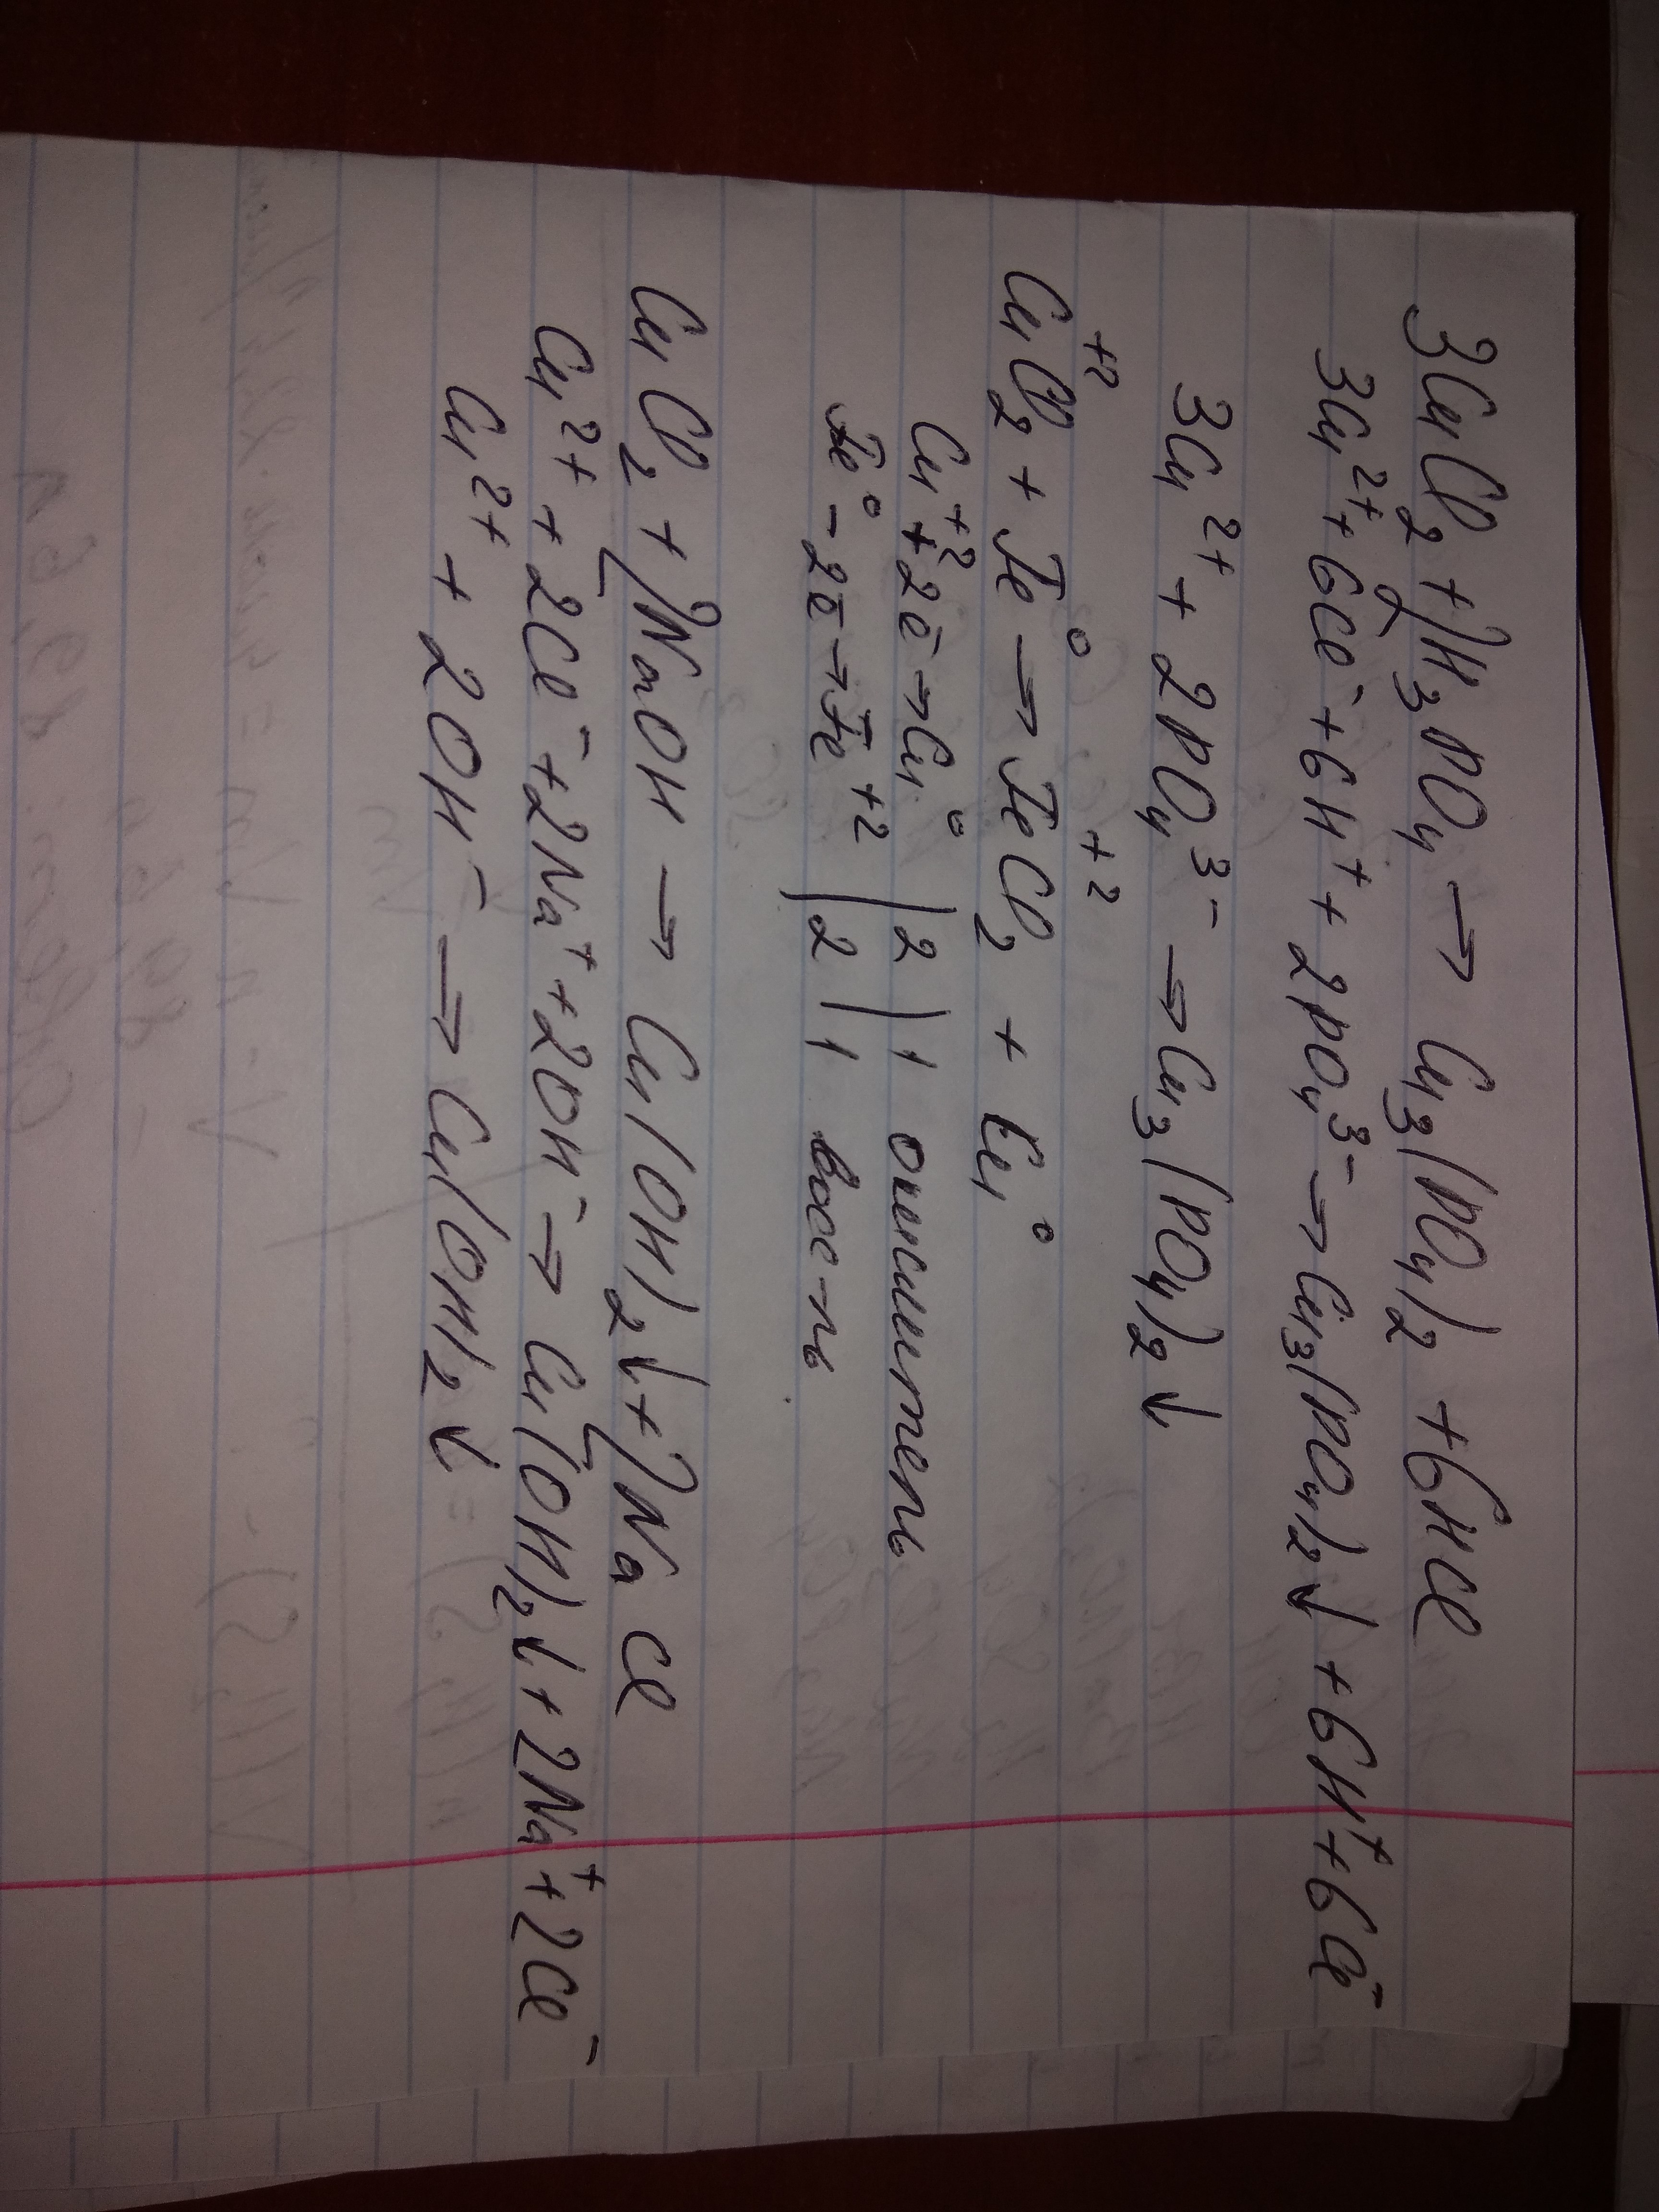 3CuCl₂ + 2H₃PO₄ → Cu₃(PO₄)₂ + 6HCl
3Cu²⁺ + 6Cl⁻ + 6H⁺ + 2PO₄³⁻ → Cu₃(PO₄)₂↓ + 6H⁺ + 6Cl⁻
3Cu²⁺ + 2PO₄³⁻ → Cu₃(PO₄)₂↓
Cu⁺²Cl₂ + Fe⁰ → Fe⁺²Cl₂ + Cu⁰
Cu⁺² + 2ē → Cu⁰ | 2 | 1 окислитель
Fe⁰ - 2ē → Fe⁺² | 2 | 1 вос-ль
CuCl₂ + 2NaOH → Cu(OH)₂↓ + 2NaCl
Cu²⁺ + 2Cl⁻ + 2Na⁺ + 2OH⁻ → Cu(OH)₂↓ + 2Na⁺ + 2Cl⁻
Cu²⁺ + 2OH⁻ → Cu(OH)₂↓